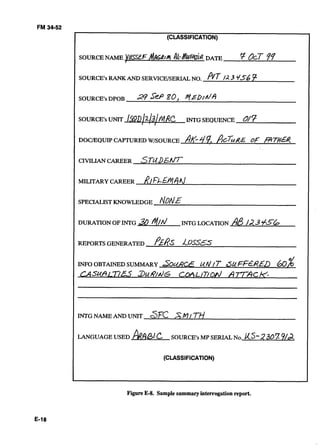 FM 34-52
(CLASSIFICATION)
SOURCE NAME YUSSEF MAGRIM AL-MUHADIR DATE 9 OCT 99
SOURCE's RANK AND SERVICE/SERIAL NO. PVT 1234567
SOURCE's DPOB 29 SEP 80, MEDINA
SOURCE's UNIT 1SQD/2/3/MRC INTG SEQUENCE 017
DOC/EQUIP CAPTURED W/SOURCE AK-49, PICTURE OF FATHER
CIVILIAN CAREER STUDENT
MILITARY CAREER RIFLEMAN
SPECIALIST KNOWLEDGE NONE
DURATION OF INTG 30 MIN INTG LOCATION AB 123456
REPORTS GENERATED PERS LOSSES
INFO OBTAINED SUMMARY SOURCE UNIT SUFFERED 60%
CASUALTIES DURING COALITION ATTACK.
INTG NAME AND UNIT SFC SMITH
LANGUAGE USED ARABIC SOURCE's MP SERIAL No. US-230791/2
(CLASSIFICATION)
Figure E-8. Sample summary interrogation report.
E-18